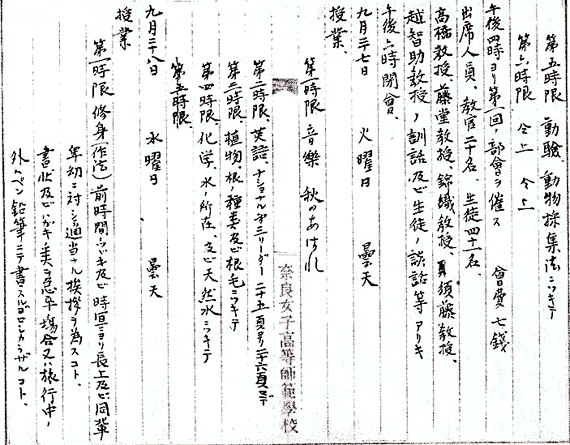 第五時限 動物 動物採集法ニツキテ
第六時限 仝上 仝上
午後四時ヨリ第一回、部會ヲ催ス 會費七錢
出席人員、教官二十名、生徒四十一名、
高橋教授、藤堂教授、錦織教授、須藤教授、
越智助教授ノ訓話、及ビ生徒ノ談話等アリキ
午後六時閉會、
九月二十七日 火曜日 曇天
授業、
第一時限 音樂 秋のあはれ
第二時限、英語、ナショナル第三リーダー二十五頁ヨリ二十六頁マデ
第三時限、植物、根ノ種類及ビ根毛ニツキテ
第四時限、化学、水ノ所在、及ビ天然水ニツキテ
第五時限、
九月二十八日 水曜日 曇天
授業
第一時限 修身(作法) 前時間ノツヾキ及ビ時宜ニヨリ長上及ビ同輩
卑幼ニ対シ適当ナル挨拶ヲ為スコト、
書状及ビハガキノ類ヲ急卒ノ場合又ハ旅行中ノ
外ハペン鉛筆ニテ書スルベカラザルコト、
奈良女子高等師範學校